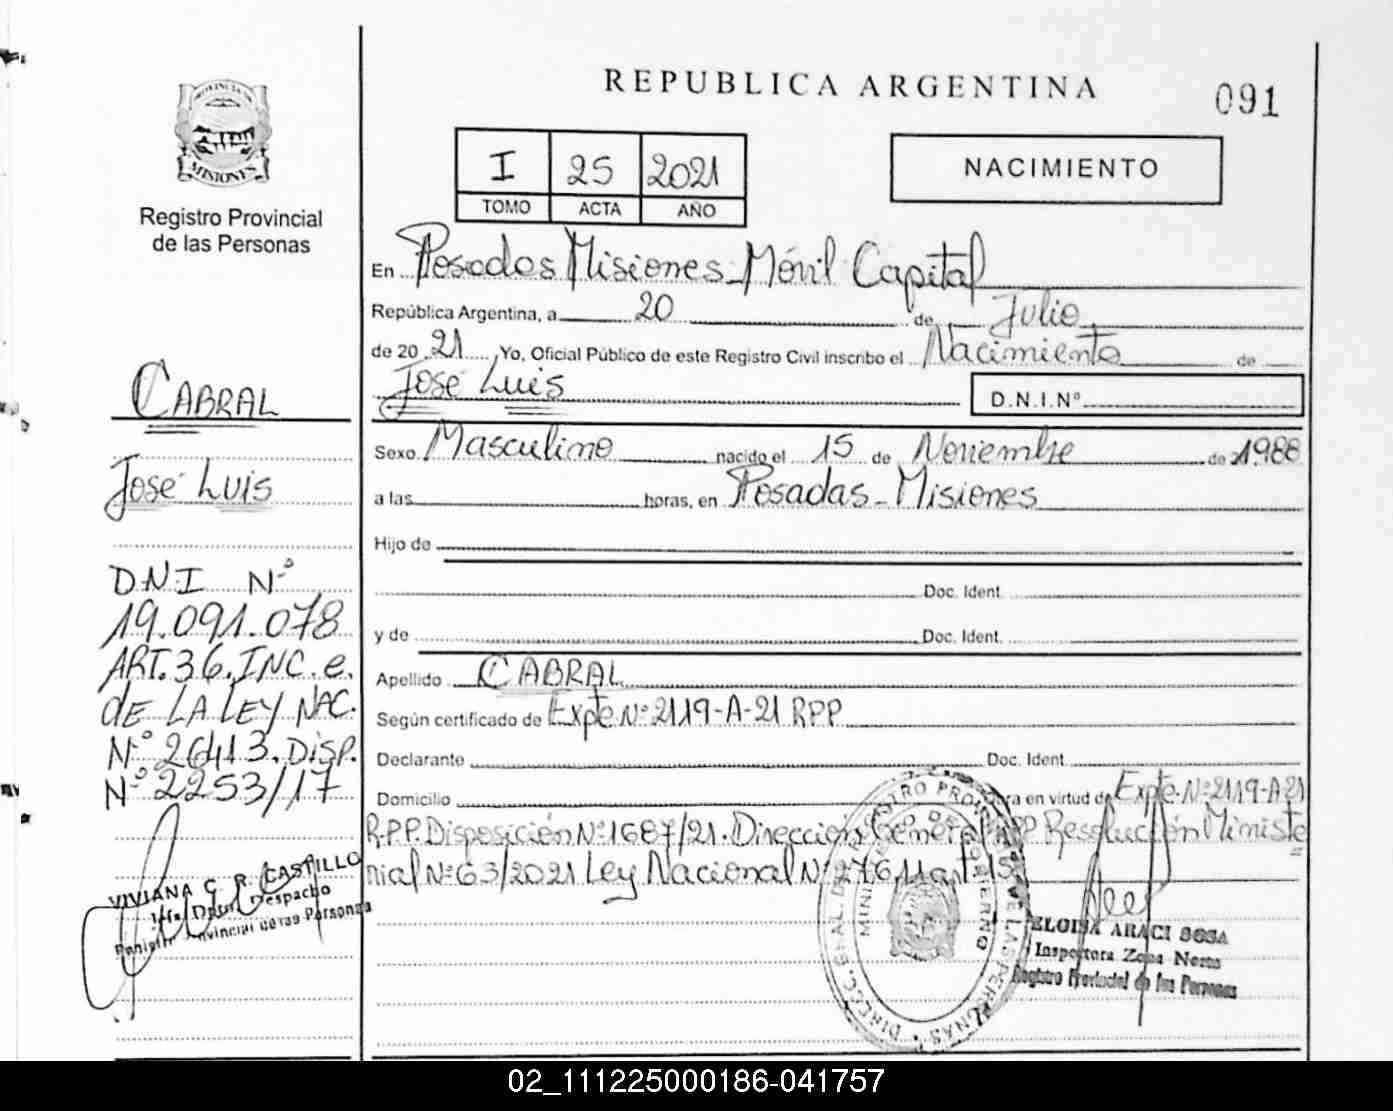 REPUBLICA ARGENTINA
091
PROVINCIA DE
MISIONES
Registro Provincial
de las Personas
I 25 2021
TOMO ACTA AÑO
NACIMIENTO
En Posadas Misiones - Móvil Capital
República Argentina, a 20 de Julio
de 20 21, Yo, Oficial Público de este Registro Civil inscribo el Nacimiento de
José Luis
D.N.I.Nº
Sexo Masculino nacido el 15 de Noviembre de 1988
a las horas, en Posadas - Misiones
Hijo de
Doc. Ident.
y de Doc. Ident.
Apellido CABRAL
Según certificado de Expte Nº 2119-A-21 RPP
Declarante Doc. Ident.
Domicilio en virtud de Expte Nº 2119-A-21
R.P.P. Disposición Nº 1687/21. Direccion General RPP Resolución Ministe
rial Nº 63/2021 Ley Nacional Nº 27611 art
CABRAL
José Luis
D.N.I Nº
19.091.078
ART. 36. INC. e.
dE LA LEY NAC.
Nº 26413. DiSP.
Nº 2253/17
VIVIANA G. R. CASTILLO
Despacho
Provincial de las Personas
ELOISA ARACI SOSA
Inspectora Zona
Registro Provincial de las Personas
02_111225000186-041757